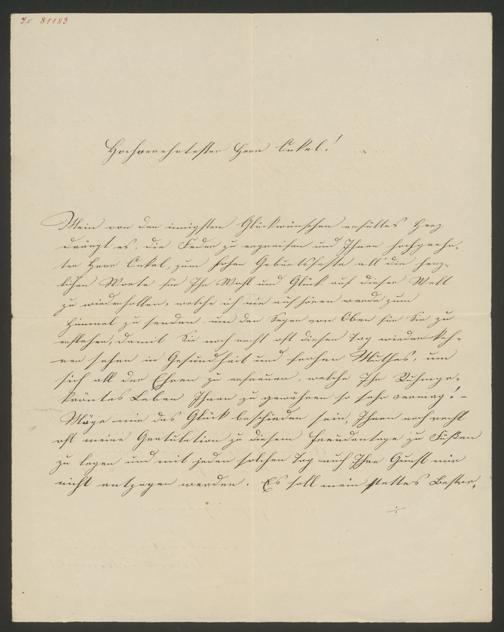 I.N. 81183
Hochverehrtester Herr Onkel!
Mein von den innigsten Glückwünschen erfülltes Herz
drängt es, die Feder zu ergreifen und Ihnen hochgeehr-
ter Herr Onkel, zum hohen Geburtsfeste all' die herz-
lichen Worte für Ihr Wohl und Glück auf dieser Welt
zu wiederhollen, welche ich nie aufhören werde zum
Himmel zu senden um den Segen von Oben für Sie zu
erflehen, damit Sie noch recht oft diesen Tag wiederkeh-
ren sehen in Gesundheit und frohen Muthes, um
sich all der Ehren zu erfreuen, welche Ihr Ruhmge-
kröntes Leben Ihnen zu gewähren so sehr vermag! –
Möge mir das Glück beschieden sein, Ihnen noch recht
oft meine Gratulation zu diesem Freudentage zu Füßen
zu legen und mit jeden solchen Tag auch Ihre Gunst mir
nicht entzogen werden. Es soll mein stettes Bestre-